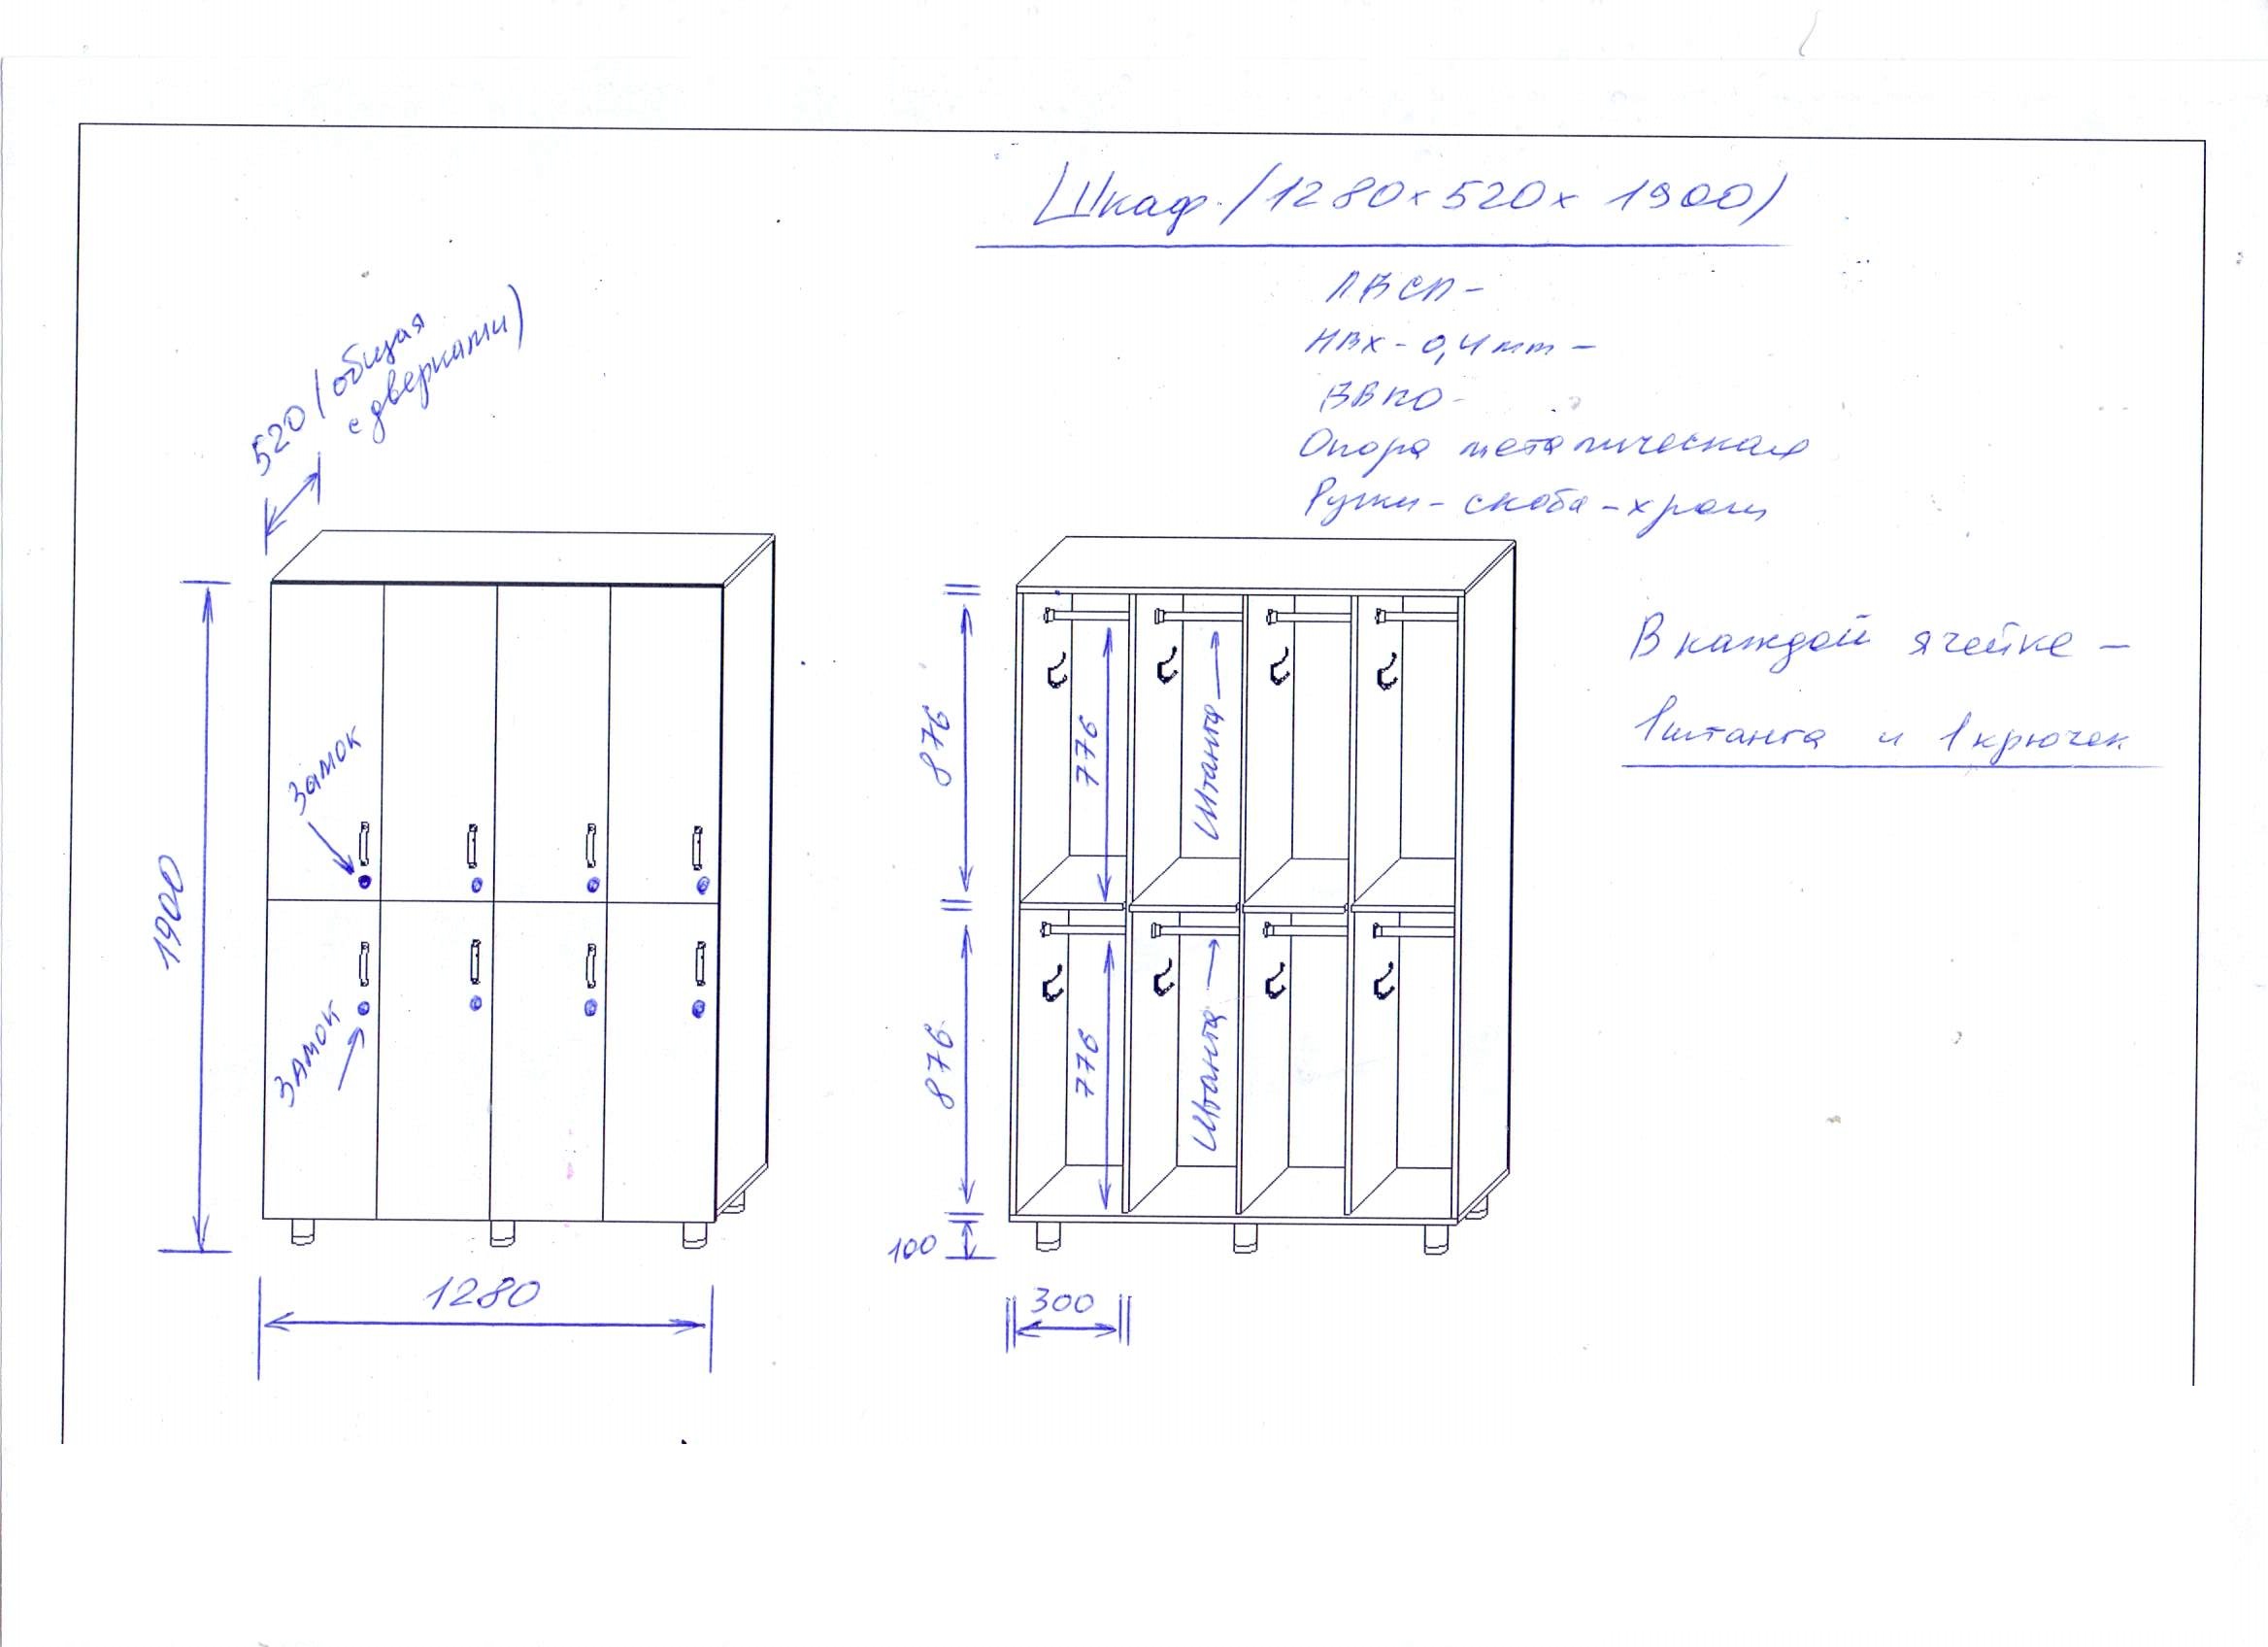 Шкаф /1280х520х 1900/
ЛДСП -
ПВХ - 0,4мм -
ДВПО -
Опора металическая
Ручки - скоба - хром
520 (общая
с дверками)
В каждой ячейке -
1 штанга и 1 крючек
Замок
876
776
Штанга
1900
Замок
876
776
Штанга
100
1280
300